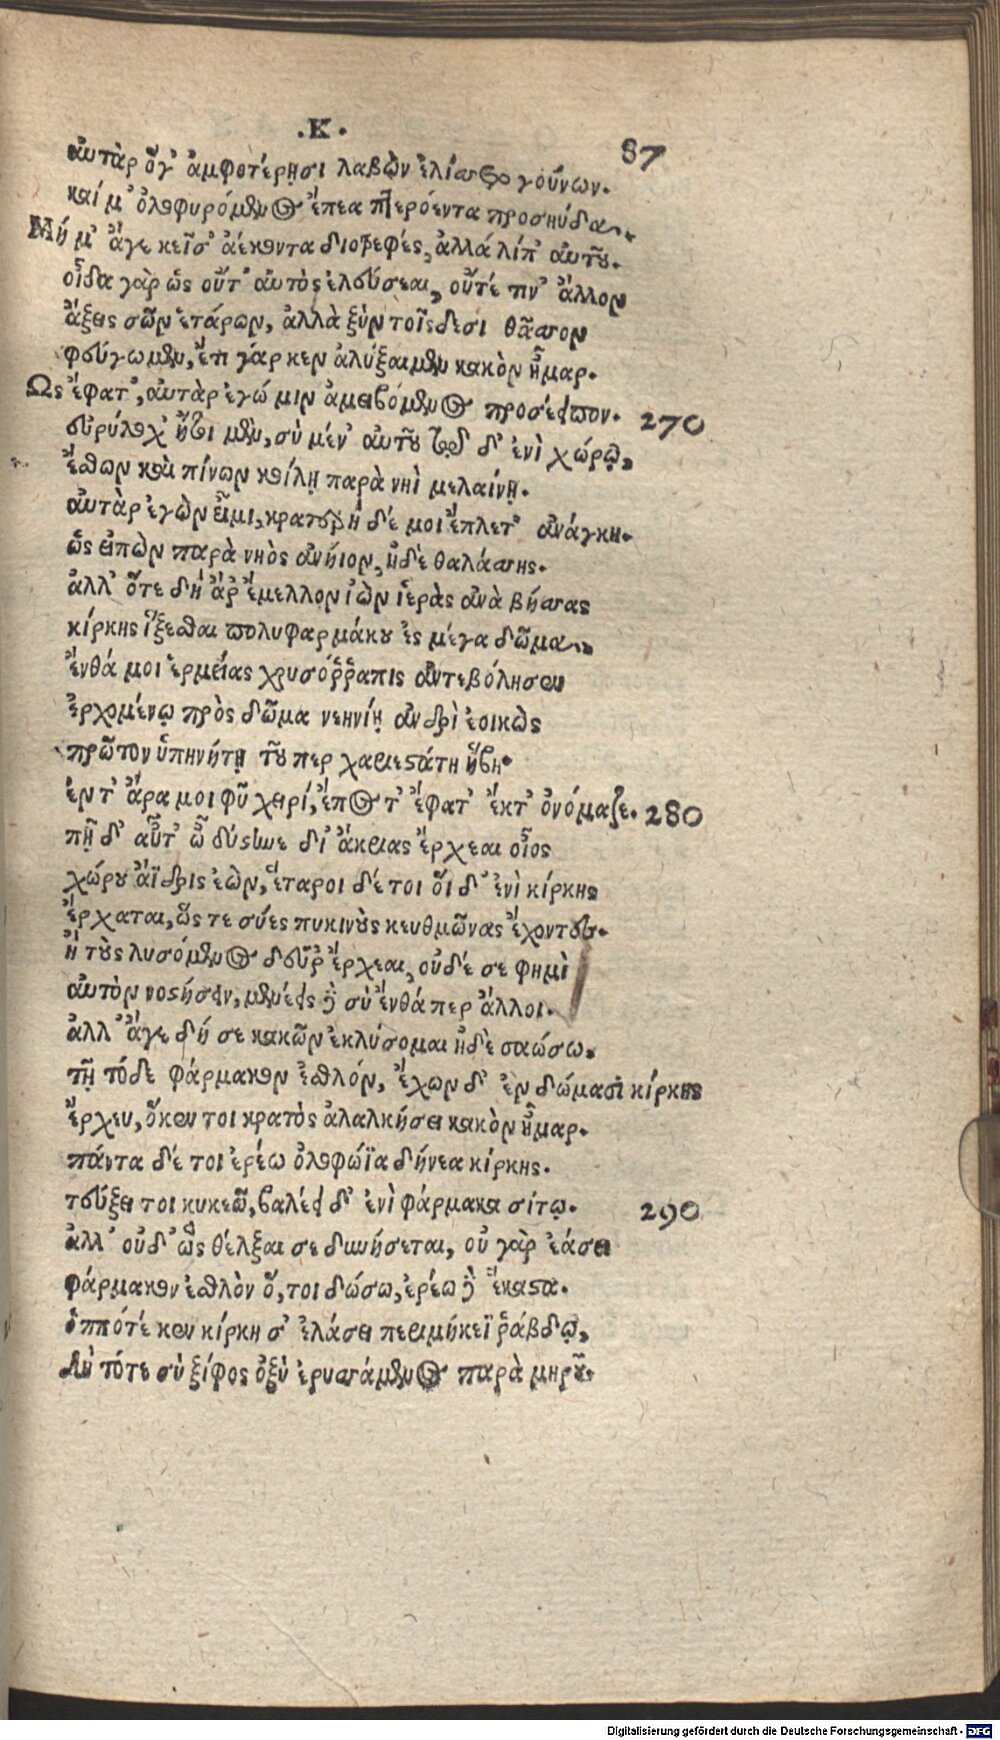 .Κ.
87
αὐτὰρ ὅγ' ἀμφοτέρῃσι λαβὼν ἐλίσσετο γούνων.
καί μ' ὀλοφυρόμενος ἔπεα πτερόεντα προσηύδα.
Μή μ' ἄγε κεῖσ' ἀέκοντα διοτρεφές, ἀλλὰ λίπ' αὐτοῦ.
οἶδα γὰρ ὡς οὔτ' αὐτὸς ἐλεύσεαι, οὔτέ τιν' ἄλλον
ἄξεις σῶν ἑτάρων, ἀλλὰ ξὺν τοῖσδεσι θᾶσσον
φεύγωμεν, ἔτι γάρ κεν ἀλύξαιμεν κακὸν ἦμαρ.
Ως ἔφατ', αὐτὰρ ἐγώ μιν ἀμειβόμενος προσέειπον. 270
εὐρύλοχ' ἤτοι μὲν, σὺ μέν' αὐτοῦ τῷδ' ἐνὶ χώρῳ,
ἔσθων καὶ πίνων κοίλῃ παρὰ νηῒ μελαίνῃ.
αὐτὰρ ἐγὼν εἶμι, κρατερὴ δέ μοι ἔπλετ' ἀνάγκη.
ὣς εἰπὼν παρὰ νηὸς ἀνήϊον, ἠδὲ θαλάσσης.
ἀλλ' ὅτε δὴ ἄρ' ἔμελλον ἰὼν ἱερὰς ἀνὰ βήσσας
κίρκης ἵξεσθαι πολυφαρμάκου ἐς μέγα δῶμα,
ἔνθά μοι ἑρμείας χρυσόῤῥαπις ἀντεβόλησεν
ἐρχομένῳ πρὸς δῶμα νεηνίῃ ἀνδρὶ ἐοικὼς
πρῶτον ὑπηνήτῃ τοῦ περ χαριεστάτη ἥβη.
ἔν τ' ἄρα μοι φῦ χειρί, ἔπος τ' ἔφατ' ἔκ τ' ὀνόμαζε. 280
πῇ δ' αὖτ' ὦ δύστηνε δι' ἄκριας ἔρχεαι οἶος
χώρου ἄϊδρις ἐὼν, ἕταροι δέ τοι οἵδ' ἐνὶ κίρκης
ἔρχαται, ὥς τε σύες πυκινοὺς κευθμῶνας ἔχοντες.
ἦ τοὺς λυσόμενος δεῦρ' ἔρχεαι, οὐδέ σε φημὶ
αὐτὸν νοστήσειν, μενέεις δὲ σὺ ἔνθά περ ἄλλοι.
ἀλλ' ἄγε δή σε κακῶν ἐκλύσομαι ἠδὲ σαώσω,
τῆ τόδε φάρμακον ἐσθλόν, ἔχων δ' ἐν δώμασι κίρκης
ἔρχευ, ὅκεν τοι κρατὸς ἀλαλκήσει κακὸν ἦμαρ.
πάντα δέ τοι ἐρέω ὀλοφώϊα δήνεα κίρκης.
τεύξει τοι κυκεῶ, βαλέει δ' ἐνὶ φάρμακα σίτῳ. 290
ἀλλ' οὐδ' ὣς θέλξαι σε δυνήσεται, οὐ γὰρ ἐάσει
φάρμακον ἐσθλὸν ὅ,τοι δώσω, ἐρέω δὲ ἕκαστα.
ὁππότέ κεν κίρκη σ' ἐλάσει περιμήκεϊ ῥάβδῳ,
δὴ τότε σὺ ξίφος ὀξὺ ἐρυσσάμενος παρὰ μηροῦ.
Digitalisierung gefördert durch die Deutsche Forschungsgemeinschaft - DFG